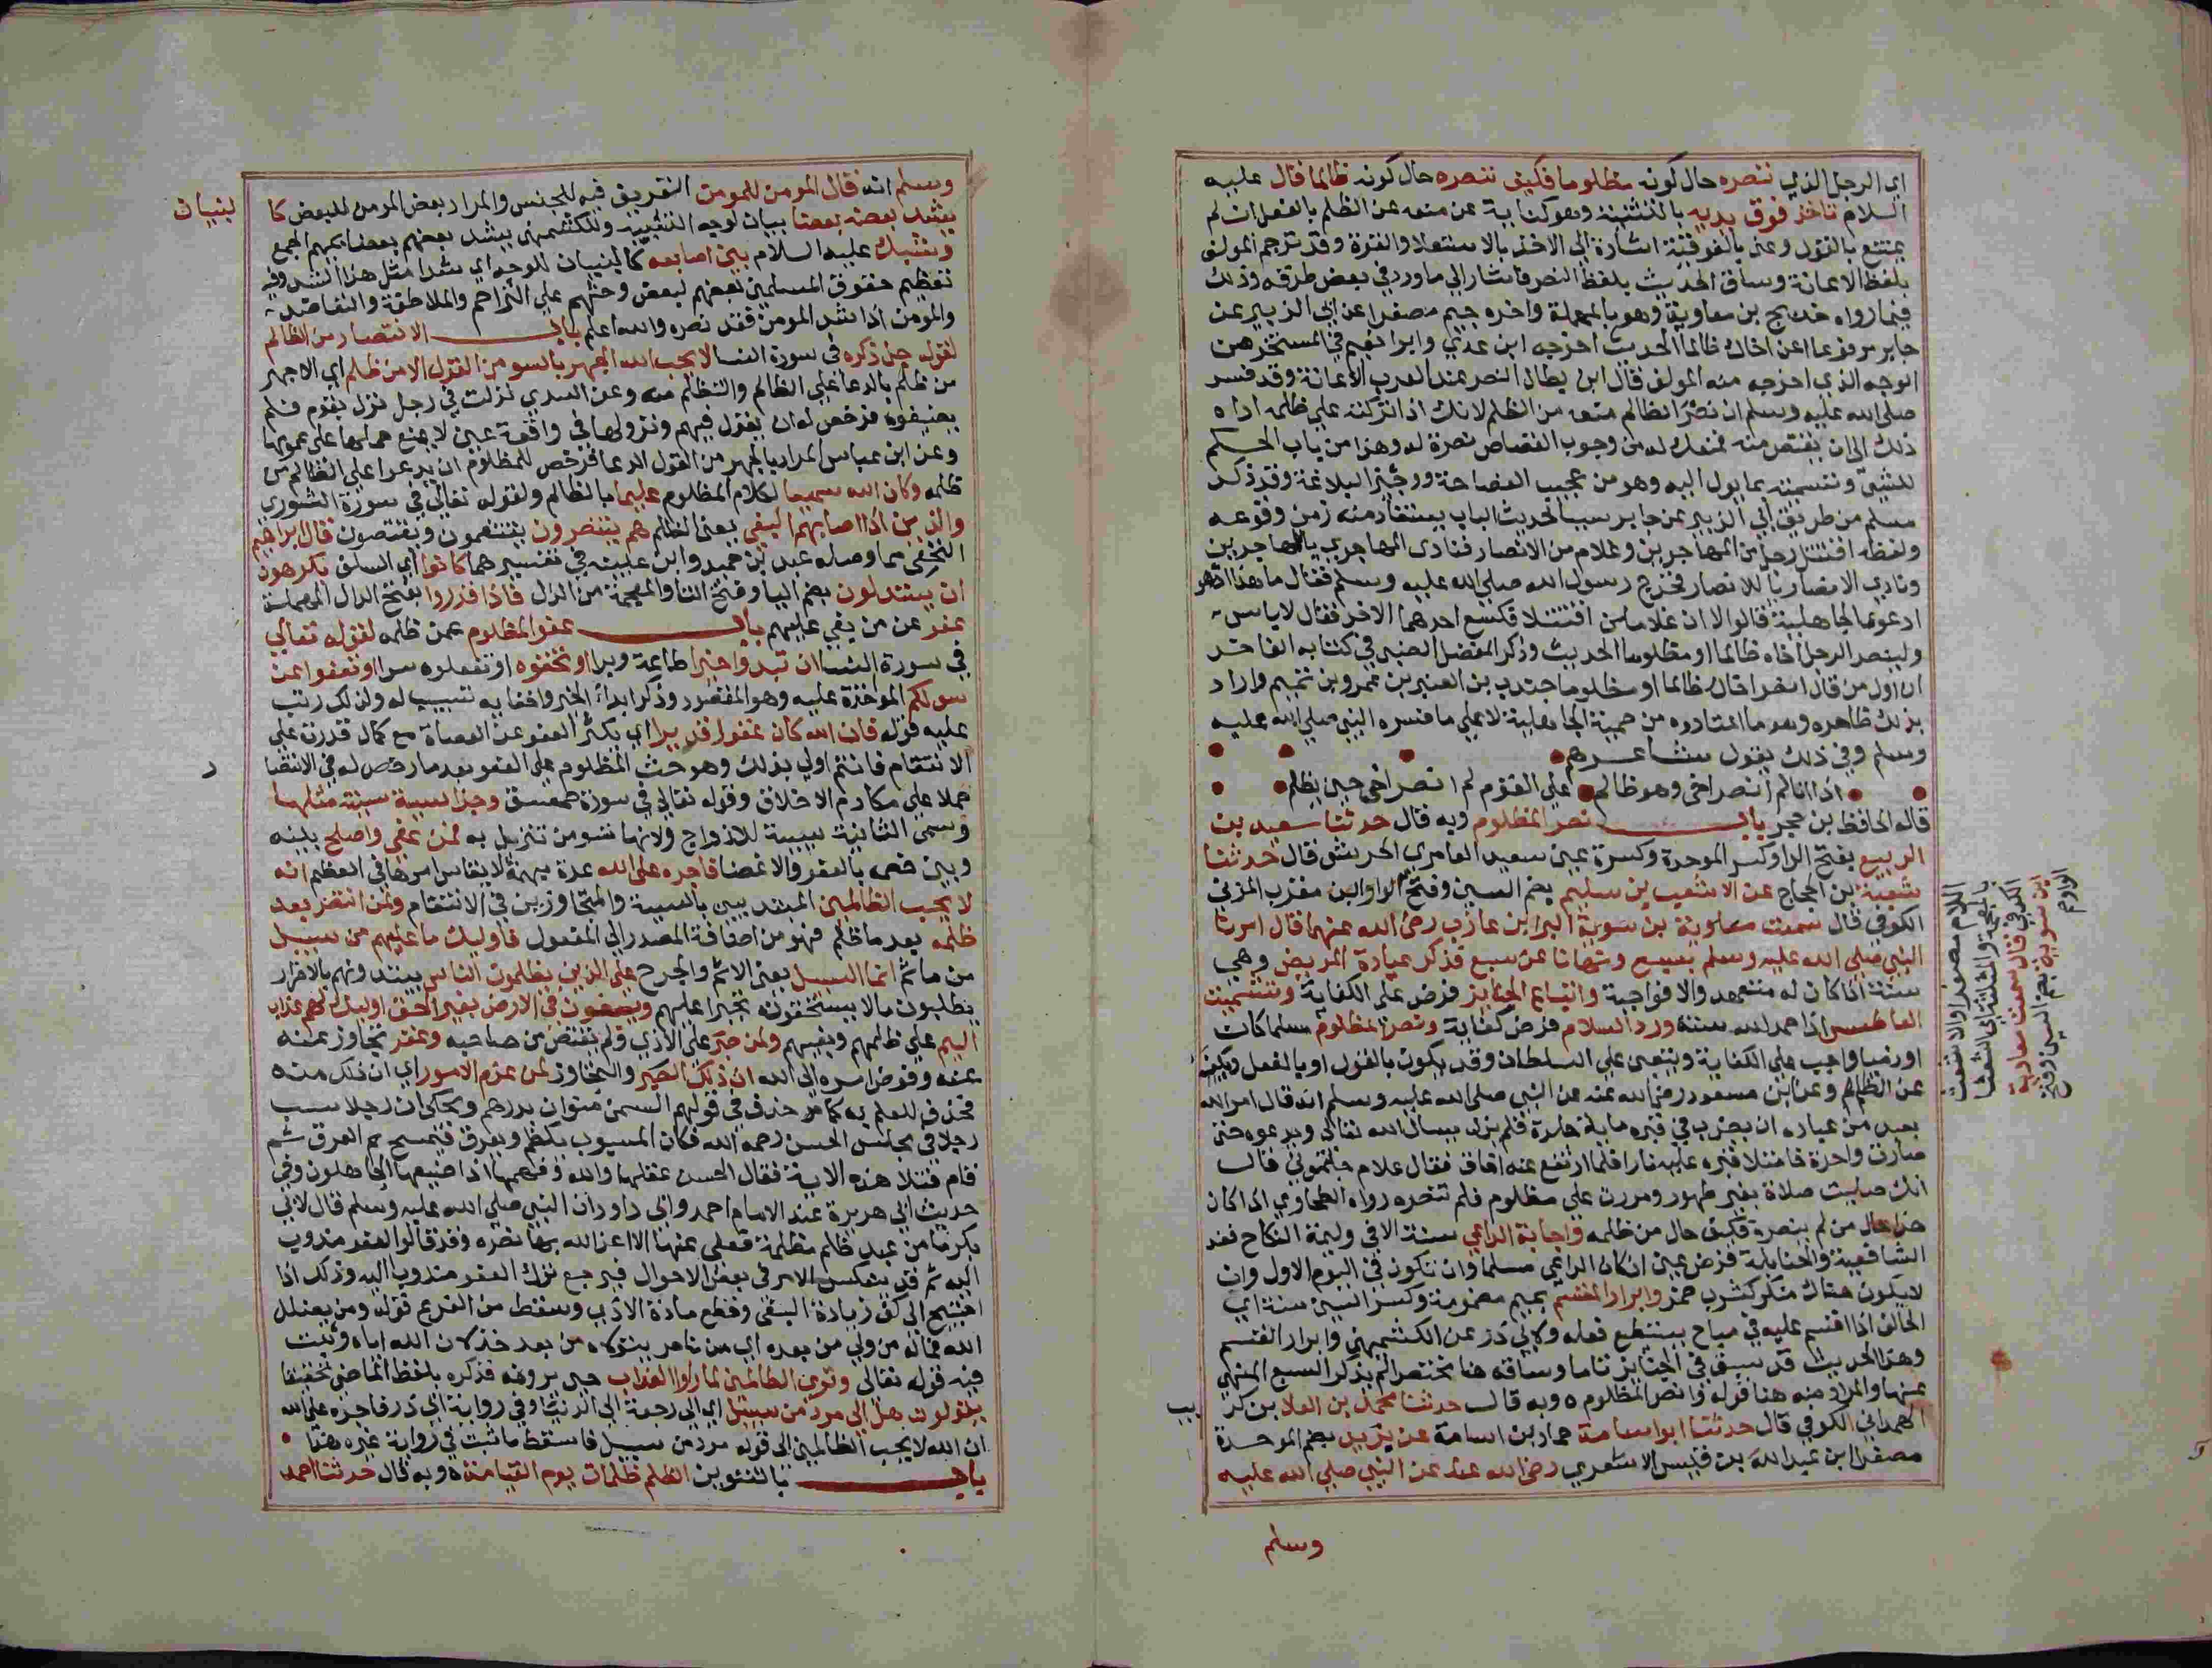 اي الرجل الذي ننصره حال كونه مظلوما فكيف ننصره حال كونه ظالما فقال عليه
السلام تاخذ فوق يديه بالتثنية وهو كناية عن منعه عن الظلم بالفعل ان لم
يمتنع بالقول وعنى بالفوقية اشارة الى الاخذ بالاستعلا والقوة وقد ترجم المولف
بلفظ الاعانة وساق الحديث بلفظ النصر فاشار الى ما ورد في بعض طرقه وذلك
فيما رواه خديج بن معاوية وهو بالمهملة واخره جيم مصغرا عن ابي الزبير عن
جابر مرفوعا اعن اخاك ظالما الحديث اخرجه ابن عدي وابو نعيم في المستخرج من
الوجه الذي اخرجه منه المولف قال ابن بطال النصر عند العرب الاعانة وقد فسر
صلى الله عليه وسلم ان نصر الظالم منعه من الظلم لانك اذا تركته على ظلمه اداه
ذلك الى ان يقتص منه فمنعك له من وجوب القصاص نصرة له وهذا من باب الحكم
للشي وتسميته بما يول اليه وهو من عجيب الفصاحة ووجيز البلاغة وقد ذكر
مسلم من طريق ابي الزبير عن جابر سببا لحديث الباب يستفاد منه زمن وقوعه
ولفظه اقتتل رجل من المهاجرين وغلام من الانصار فنادى المهاجري يا للمهاجرين
ونادى الانصاري يا للانصار فخرج رسول الله صلى الله عليه وسلم فقال ما هذا اهو
ادعوى الجاهلية قالوا لا ان غلامين اقتتلا فكسع احدهما الاخر فقال لا باس
ولينصر الرجل اخاه ظالما او مظلوما الحديث وذكر المفضل الضبي في كتابه الفاخر
ان اول من قال انصر اخاك ظالما او مظلوما جندب بن العنبر بن عمرو بن تميم واراد
بذلك ظاهره وهو ما اعتادوه من حمية الجاهلية لا على ما فسره النبي صلى الله عليه
وسلم وفي ذلك يقول شاعرهم
اذا انا لم انصر اخي وهو ظالم على القوم لم انصر اخي حين يظلم
قاله الحافظ بن حجر باب نصر المظلوم وبه قال حدثنا سعيد بن
الربيع بفتح الرا وكسر الموحدة وكسرة عين سعيد العامري الحرشي قال حدثنا
شعبة بن الحجاج عن الاشعث بن سليم بضم السين وفتح الواو ابن مقرن المزني
الكوفي قال سمعت معاوية بن سويد البرا بن عازب رضي الله عنهما قال امرنا
النبي صلى الله عليه وسلم بسبع ونهانا عن سبع فذكر عيادة المريض وهي
سنة اذا كان له متعهد والا فواجبة واتباع الجنايز فرض على الكفاية وتشميت
العاطس اذا حمد الله سنة ورد السلام فرض كفاية ونصر المظلوم مسلما كان
او ذميا واجب على الكفاية ويتعين على السلطان وقد يكون بالقول او بالفعل ويكفه
عن الظلم وعن ابن مسعود رضي الله عنه عن النبي صلى الله عليه وسلم انه قال امر الله
بعبد من عباده ان يضرب في قبره ماية جلدة فلم يزل يسال الله تعالى ويدعوه حتى
صارت واحدة فامتلا قبره عليه نارا فلما ارتفع عنه افاق فقال علام جلدتموني قال
انك صليت صلاة بغير طهور ومررت على مظلوم فلم تنصره رواه الطحاوي اذا كان
هذا حال من لم ينصره فكيف حال من ظلمه واجابة الداعي سنة الا في وليمة النكاح فعند
الشافعية والحنابلة فرض عين ان كان الداعي مسلما وان تكون في اليوم الاول وان
لا يكون هناك منكر كشرب خمر وابرار المقسم بميم مضمومة وكسر السين سنة اي
الحالف اذا اقسم عليه في مباح يستطيع فعله ولابي ذر عن الكشميهني وابرار القسم
وهذا الحديث قد سبق في الجنايز تاما وساقه هنا مختصرا لم يذكر السبع المنهي
عنها والمراد منه هنا قوله ونصر المظلوم ه وبه قال حدثنا محمد بن العلا بن كر
يب
الهمداني الكوفي قال حدثنا ابو اسامة حماد بن اسامة عن بريد بضم الموحدة
مصغرا ابن عبد الله بن قيس الاشعري رضي الله عنه عن النبي صلى الله عليه
وسلم
اللام مصغرا والاشعث
بالمعجمة والمثلثة ابي الشعثا
الكوفي قال سمعت معاوية
ابن سويد بضم السين وفتح
الواو
وسلم انه قال المومن للمومن التعريف فيه للجنس والمراد بعض المومن للبعض كا
لبنيان
يشد بعضه بعضا بيان لوجه التشبيه وللكشميهني يشد بعضهم بعضا بميم الجمع
وشبك عليه السلام بين اصابعه كالبنيان للوجه اي شدا مثل هذا الشد وفيه
تعظيم حقوق المسلمين بعضهم لبعض وحثهم على التراحم والملاطفة والتعاضد
والمومن اذا شد المومن فقد نصره والله اعلم باب الانتصار من الظالم
لقوله جل ذكره في سورة النسا لا يحب الله الجهر بالسو من القول الا من ظلم اي الا جهر
من ظلم بالدعا على الظالم والتظلم منه وعن السدي نزلت في رجل نزل بقوم فلم
يضيفوه فرخص له ان يقول فيهم ونزولها في واقعة عين لا يمنع حملها على عمومها
وعن ابن عباس المراد بالجهر من القول الدعا فرخص للمظلوم ان يدعوا على الظالم من
ظلمه وكان الله سميعا لكلام المظلوم عليما بالظالم ولقوله تعالى في سورة الشورى
والذين اذا اصابهم البغي يعني الظلم هم ينتصرون ينتقمون ويقتصون قال ابراهيم
النخعي مما وصله عبد بن حميد وابن عيينة في تفسيرهما كانوا اي السلف يكرهون
ان يستذلوا بضم اليا وفتح التا والمعجمة من الذل فاذا قدروا بفتح الدال المهملة
عفوا عن من بغى عليهم باب عفو المظلوم عمن ظلمه لقوله تعالى
في سورة النسا ان تبدوا خيرا طاعة وبرا او تخفوه او تفعلوه سرا او تعفوا عن
سو لكم المواخذة عليه وهو المقصود وذكر ابدا الخير واخفايه تسبيب له ولذلك رتب
عليه قوله فان الله كان عفوا قديرا اي يكثر العفو عن العصاة مع كمال قدرته على
الانتقام فانتم اولى بذلك وهو حث المظلوم على العفو بعد ما رخص له في الانتصا
ر
حملا على مكارم الاخلاق وقوله تعالى في سورة حمعسق وجزا سيية سيية مثلها
وسمى الثانية سيية للازدواج ولانها تسو من تنزل به فمن عفى واصلح بينه
وبين خصمه بالعفو والاغضا فاجره على الله عدة مبهمة لا يقاس امرها في العظم انه
لا يحب الظالمين المبتديين بالسيية والمتجاوزين في الانتقام ولمن انتصر بعد
ظلمه بعد ما ظلم فهو من اضافة المصدر الى المفعول فاوليك ما عليهم من سبيل
من ماثم انما السبيل يعني الاثم والجرح على الذين يظلمون الناس يبتدونهم بالاضرار
يطلبون ما لا يستحقونه تجبرا عليهم ويبغون في الارض بغير الحق اوليك لهم عذاب
اليم على ظلمهم وبغيهم ولمن صبر على الاذى ولم يقتص من صاحبه وغفر تجاوز عنه
عنه وفوض امره الى الله ان ذلك الصبر والتجاوز لمن عزم الامور اي ان ذلك منه
فحذف للعلم به كما حذف في قولهم السمن منوان بدرهم ويحكى ان رجلا سب
رجلا في مجلس الحسن رحمه الله فكان المسبوب يكظم ويعرق فيمسح العرق ثم
قام فتلا هذه الاية فقال الحسن عقلها والله وفهمها اذا ضيعها الجاهلون وفي
حديث ابي هريرة عند الامام احمد وابي داود ان النبي صلى الله عليه وسلم قال لابي
بكر ما من عبد ظلم مظلمة فعفى عنها الا اعز الله بها نصره وقد قالوا العفو مندوب
اليه ثم قد ينعكس الامر في بعض الاحوال فيرجع ترك العفو مندوبا اليه وذلك اذا
احتيج الى كف زيادة البغي وقطع مادة الاذى وسقط من الفرع قوله ومن يضلل
الله فما له من ولي من بعده اي من ناصر يتولاه من بعد خذلان الله اياه وثبت
فيه قوله تعالى وترى الظالمين لما راوا العذاب حين يرونه فذكره بلفظ الماضي تحقيقا
يقولون هل الى مرد من سبيل اي الى رجعة الى الدنيا وفي رواية ابي ذر فاجره على الله
ان الله لا يحب الظالمين الى قوله مرد من سبيل فاسقط ما ثبت في رواية غيره هنا
باب بالتنوين الظلم ظلمات يوم القيامة ه وبه قال حدثنا احمد